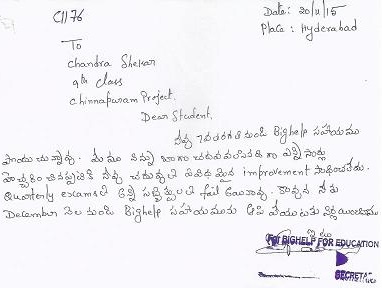 C1176
Date: 20/11/15
Place: Hyderabad
To
Chandra Shekar
9th class
Chinnapuram Project.
Dear Student,
నీవు 7వ తరగతి నుండి Bighelp సహాయము
పొందుచున్నావు. మేము నిన్ను బాగా చదువమని
హెచ్చరిక చేసినప్పటికి నీవు చదువులో ఏ విధమైన improvement సాధించలేదు.
Quarterly exams లో అన్ని సబ్జెక్టులలో fail అయినావు. కావున నేను
December నెల నుండి Bighelp సహాయమును ఆపి వేయుటకు నిర్ణయించినాము
For BIGHELP FOR EDUCATION
SECRETARY